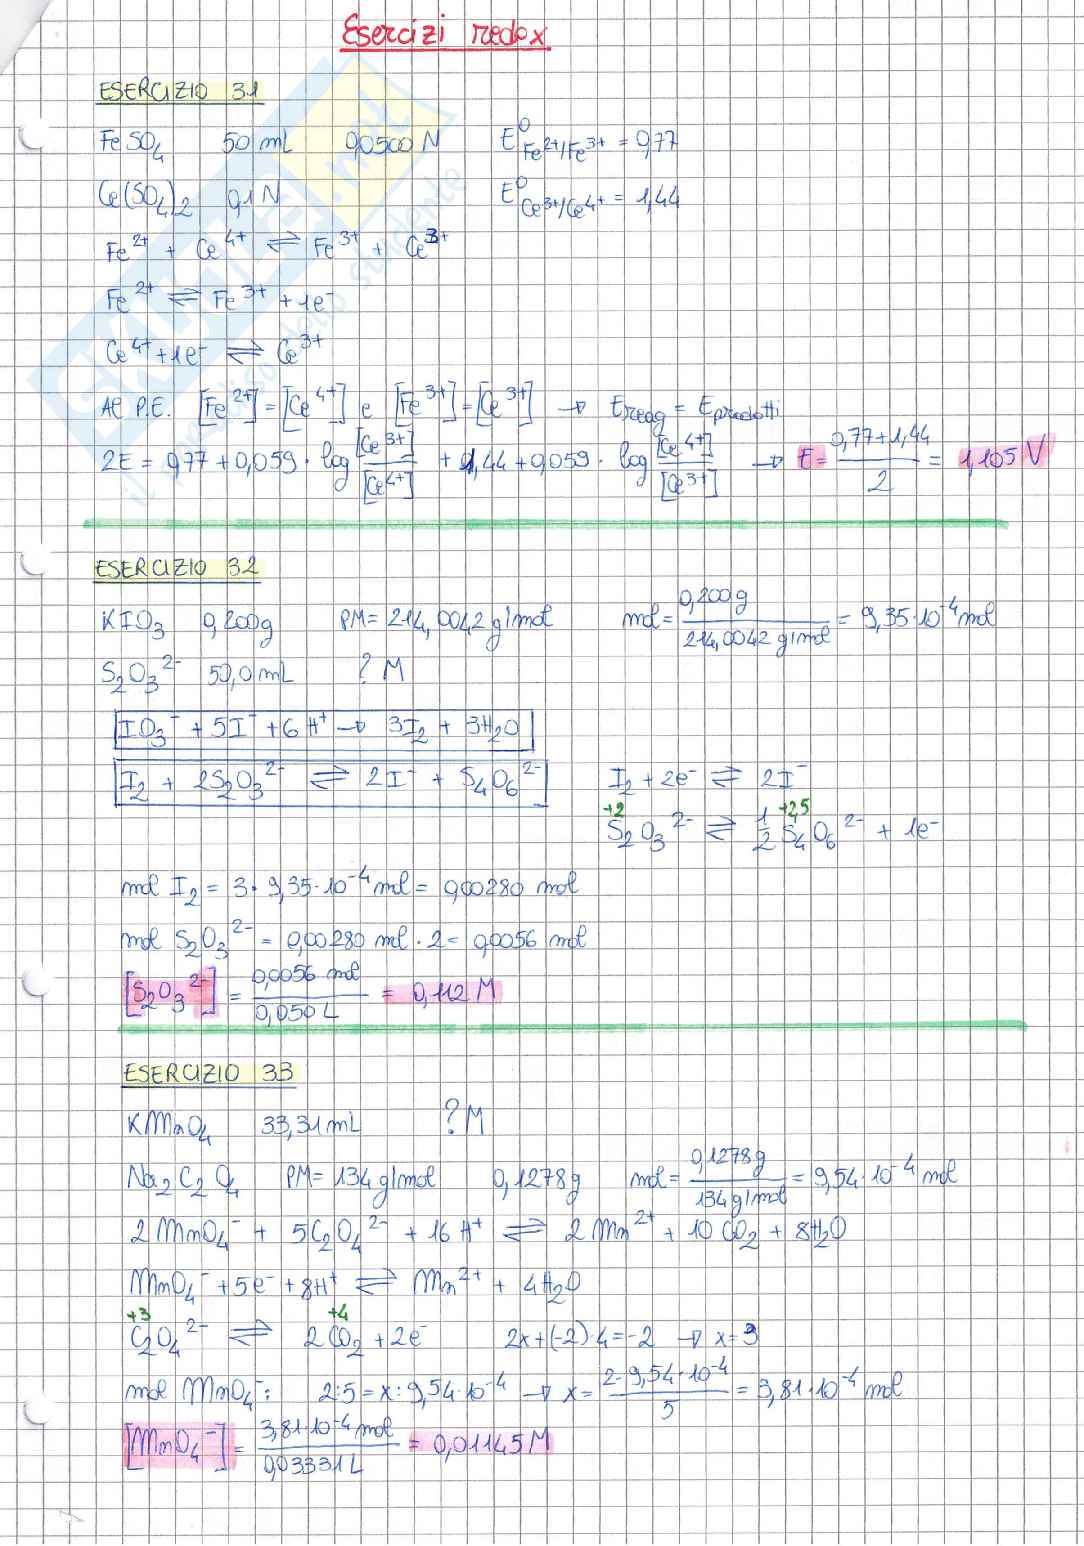 Esercizi redox
ESERCIZIO 31
FeSO₄ 50 mL 0,0500 N E⁰ Fe²⁺/Fe³⁺ = 0,77
Ce(SO₄)₂ 0,1 N E⁰ Ce³⁺/Ce⁴⁺ = 1,44
Fe²⁺ + Ce⁴⁺ ⇌ Fe³⁺ + Ce³⁺
Fe²⁺ ⇌ Fe³⁺ + 1e⁻
Ce⁴⁺ + 1e⁻ ⇌ Ce³⁺
Al P.E. [Fe²⁺] = [Ce⁴⁺] e [Fe³⁺] = [Ce³⁺] → Ereag = Eprodotti
2E = 0,77 + 0,059 · log [Ce³⁺]/[Ce⁴⁺] + 1,44 + 0,059 · log [Ce⁴⁺]/[Ce³⁺] → E = (0,77 + 1,44)/2 = 1,105 V
ESERCIZIO 32
KIO₃ 0,200g PM = 214,0042 g/mol mol = 0,200g / 214,0042 g/mol = 9,35·10⁻⁴ mol
S₂O₃²⁻ 50,0 mL ? M
IO₃⁻ + 5I⁻ + 6H⁺ → 3I₂ + 3H₂O
I₂ + 2S₂O₃²⁻ ⇌ 2I⁻ + S₄O₆²⁻ I₂ + 2e⁻ ⇌ 2I⁻
+2 +2,5
S₂O₃²⁻ ⇌ 1/2 S₄O₆²⁻ + 1e⁻
mol I₂ = 3 · 9,35·10⁻⁴ mol = 0,00280 mol
mol S₂O₃²⁻ = 0,00280 mol · 2 = 0,0056 mol
[S₂O₃²⁻] = 0,0056 mol / 0,050 L = 0,112 M
ESERCIZIO 33
KMnO₄ 33,31 mL ? M
Na₂C₂O₄ PM = 134 g/mol 0,1278g mol = 0,1278g / 134 g/mol = 9,54·10⁻⁴ mol
2MnO₄⁻ + 5C₂O₄²⁻ + 16H⁺ ⇌ 2Mn²⁺ + 10CO₂ + 8H₂O
MnO₄⁻ + 5e⁻ + 8H⁺ ⇌ Mn²⁺ + 4H₂O
+3 +4
C₂O₄²⁻ ⇌ 2CO₂ + 2e⁻ 2x + (-2)·4 = -2 → x = 3
mol MnO₄⁻: 2:5 = x : 9,54·10⁻⁴ → x = 2·9,54·10⁻⁴ / 5 = 3,81·10⁻⁴ mol
[MnO₄⁻] = 3,81·10⁻⁴ mol / 0,03331 L = 0,01145 M